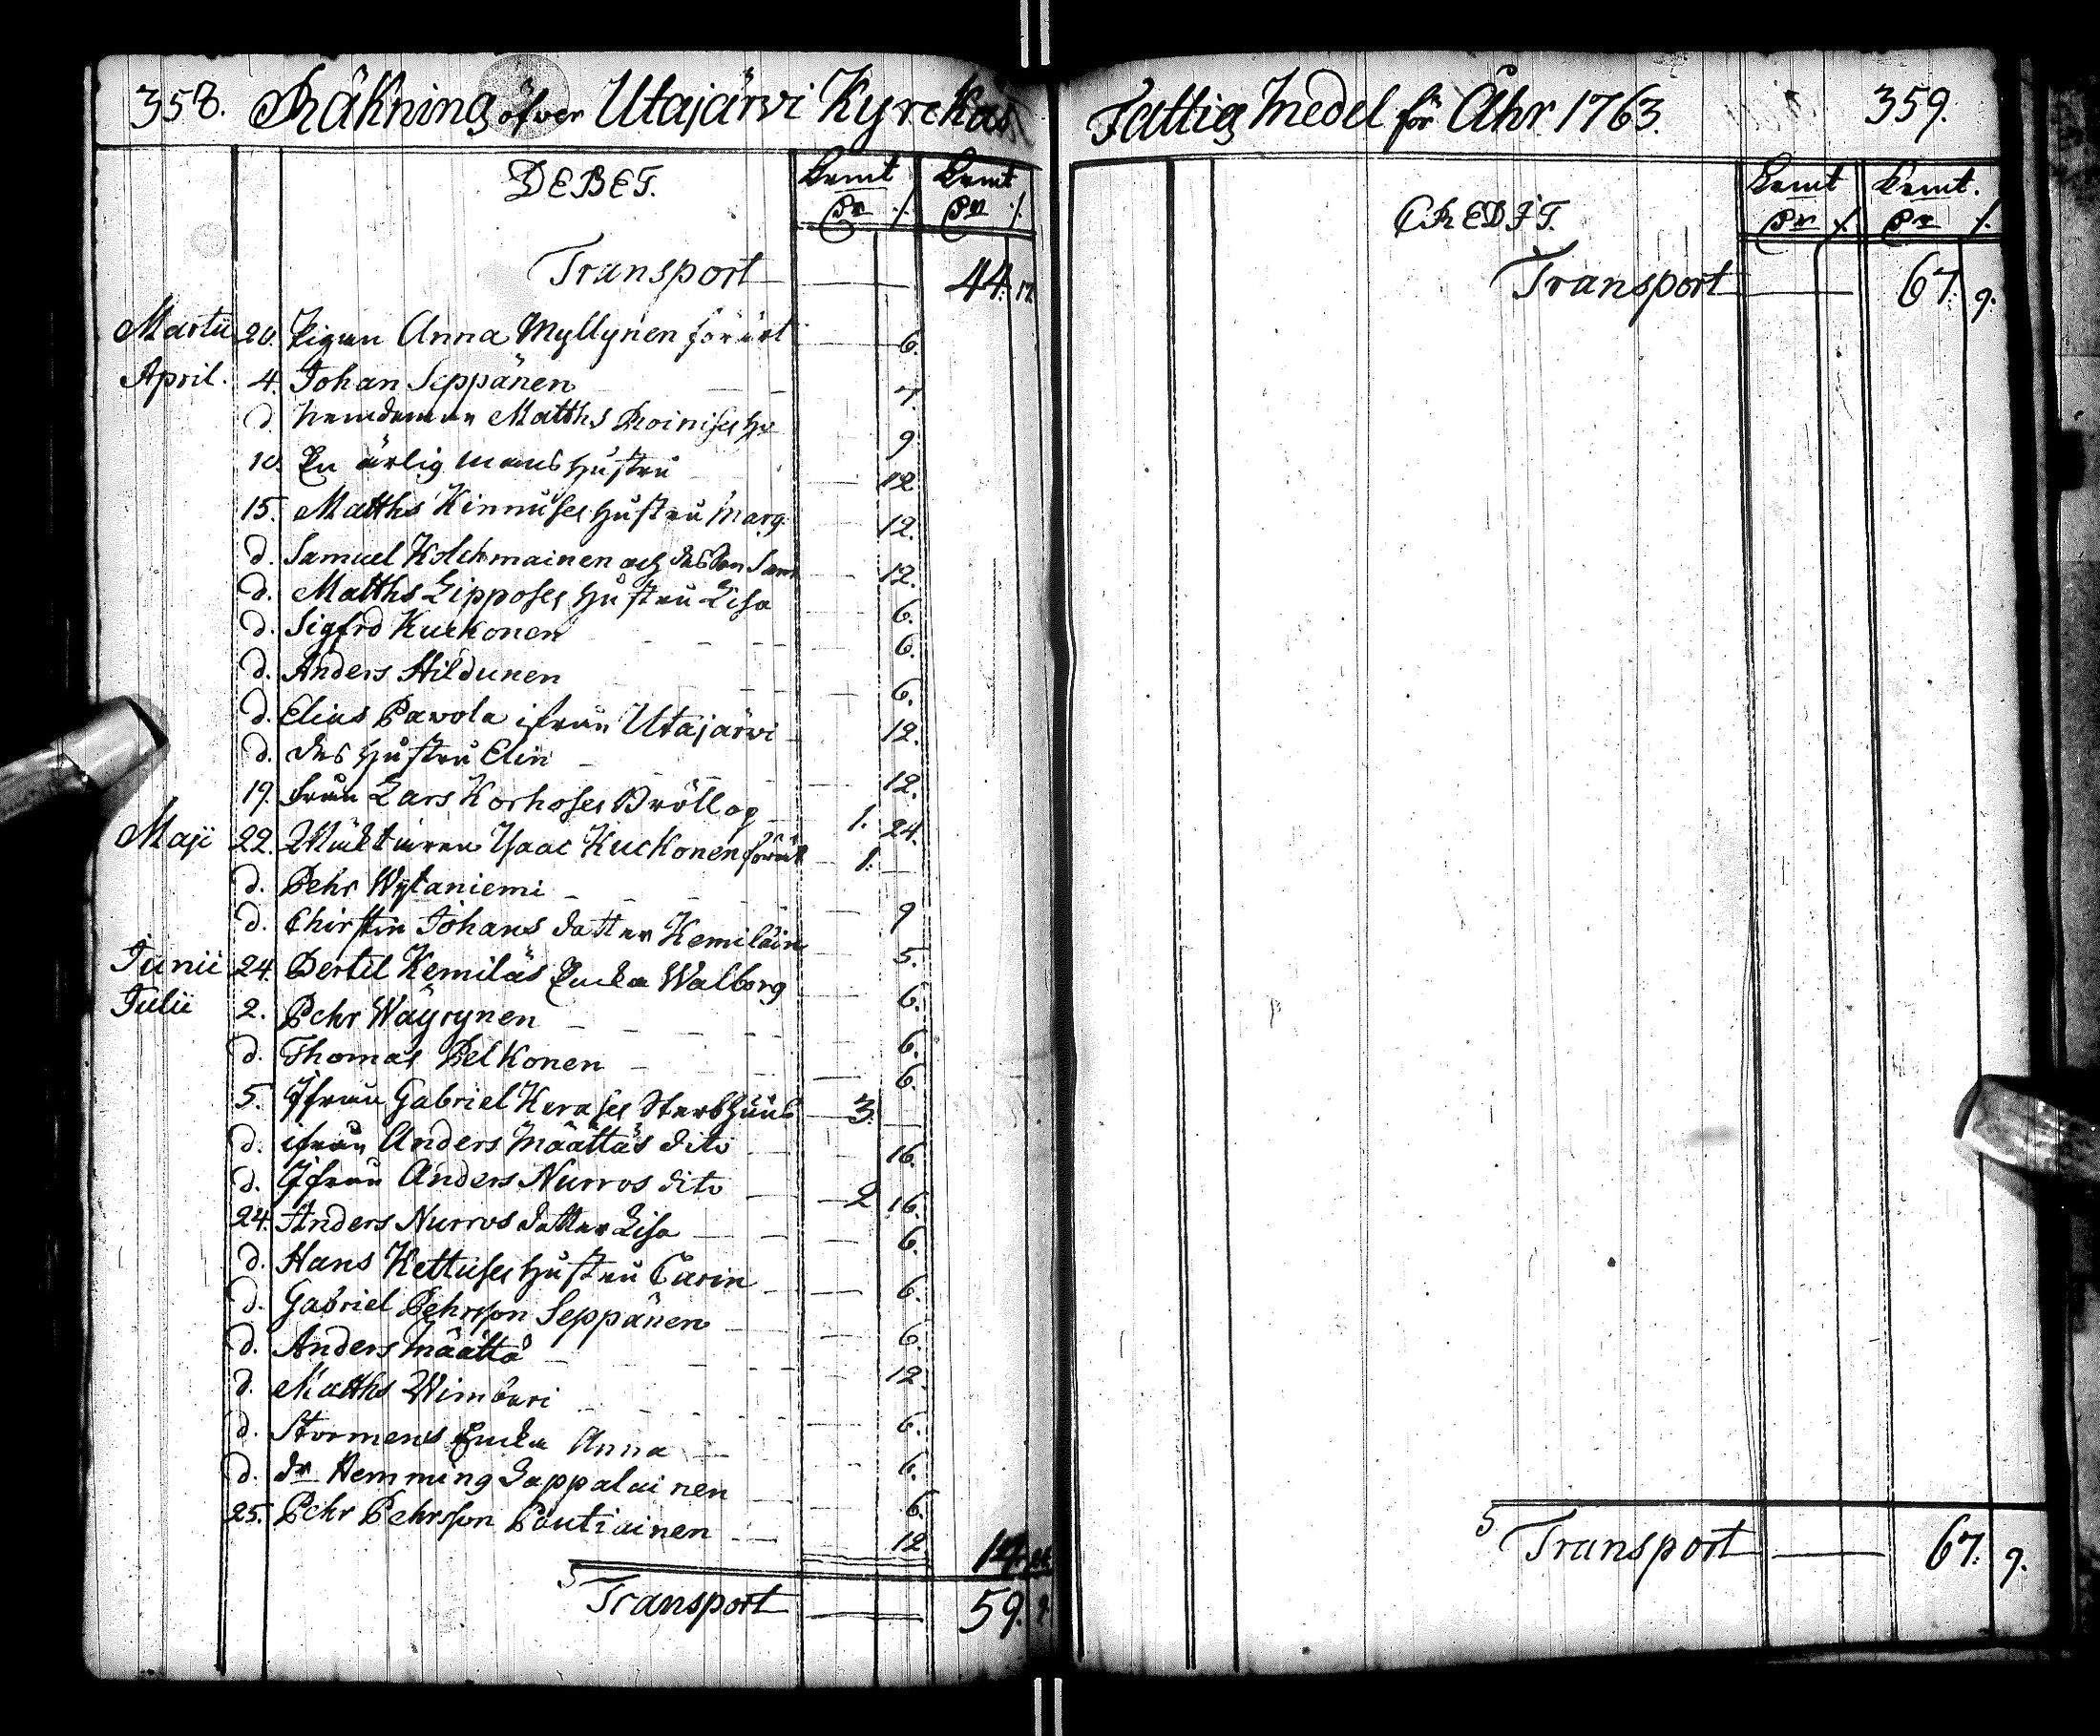 358. Räkning öfwer Utajärvi Kyrckas
DEBET.
Kmt Kmt
Transport 44. 17.
Martii 20. Pigan Anna Myllynen förärt 6.
April. 4. Johan Seppänen 7.
d. Matths Roinises 9
10. En ärlig mans hustru 12
15. Matths Kinnuses hustru Marg. 12.
d. Samuel Kolehmainen och des Son Sam 12.
d. Matths Lipposes hustru Lisa 6.
d. Sigfrd Kuckonen 6.
d. Anders Hildunen 6.
d. Elias Pavola ifrån Utajärvi 12.
d. des hustru Elin 12.
19. från Lars Korhoses Bröllop 1. 24.
Maji 22. Isaac Kuckonen förärt 1.
d. Pehr Wytaniemi 9
d. Chirstin Johans dotter Kemiläin 5.
Junii 24. Bertil Kemiläs Encka Walborg 6.
Julii 2. Pehr Wäyrynen 6.
d. Thomas Pelkonen 6.
5. Ifrån Gabriel Kerases Sterbhuus 3.
d. ifrån Anders Määttäs dito 16.
d. Ifrån Anders Nurros dito 2 16.
24. Anders Nurros dotter Lisa 6.
d. Hans Kettuses hustru Carin 6.
d. Gabriel Pehrsson Seppänen 6.
d. Anders Määttä 12.
d. Matths Wimbari 6.
d. Stormens Encka Anna 6.
d. dr Hemming Lappalainen 6.
25. Pehr Pehrsson Pautiainen 12. 14.
Transport 59. 9.
Fattig Medel för Åhr 1763. 359.
CREDIT.
Kmt Kmt.
Transport 67. 9.
Transport 67. 9.